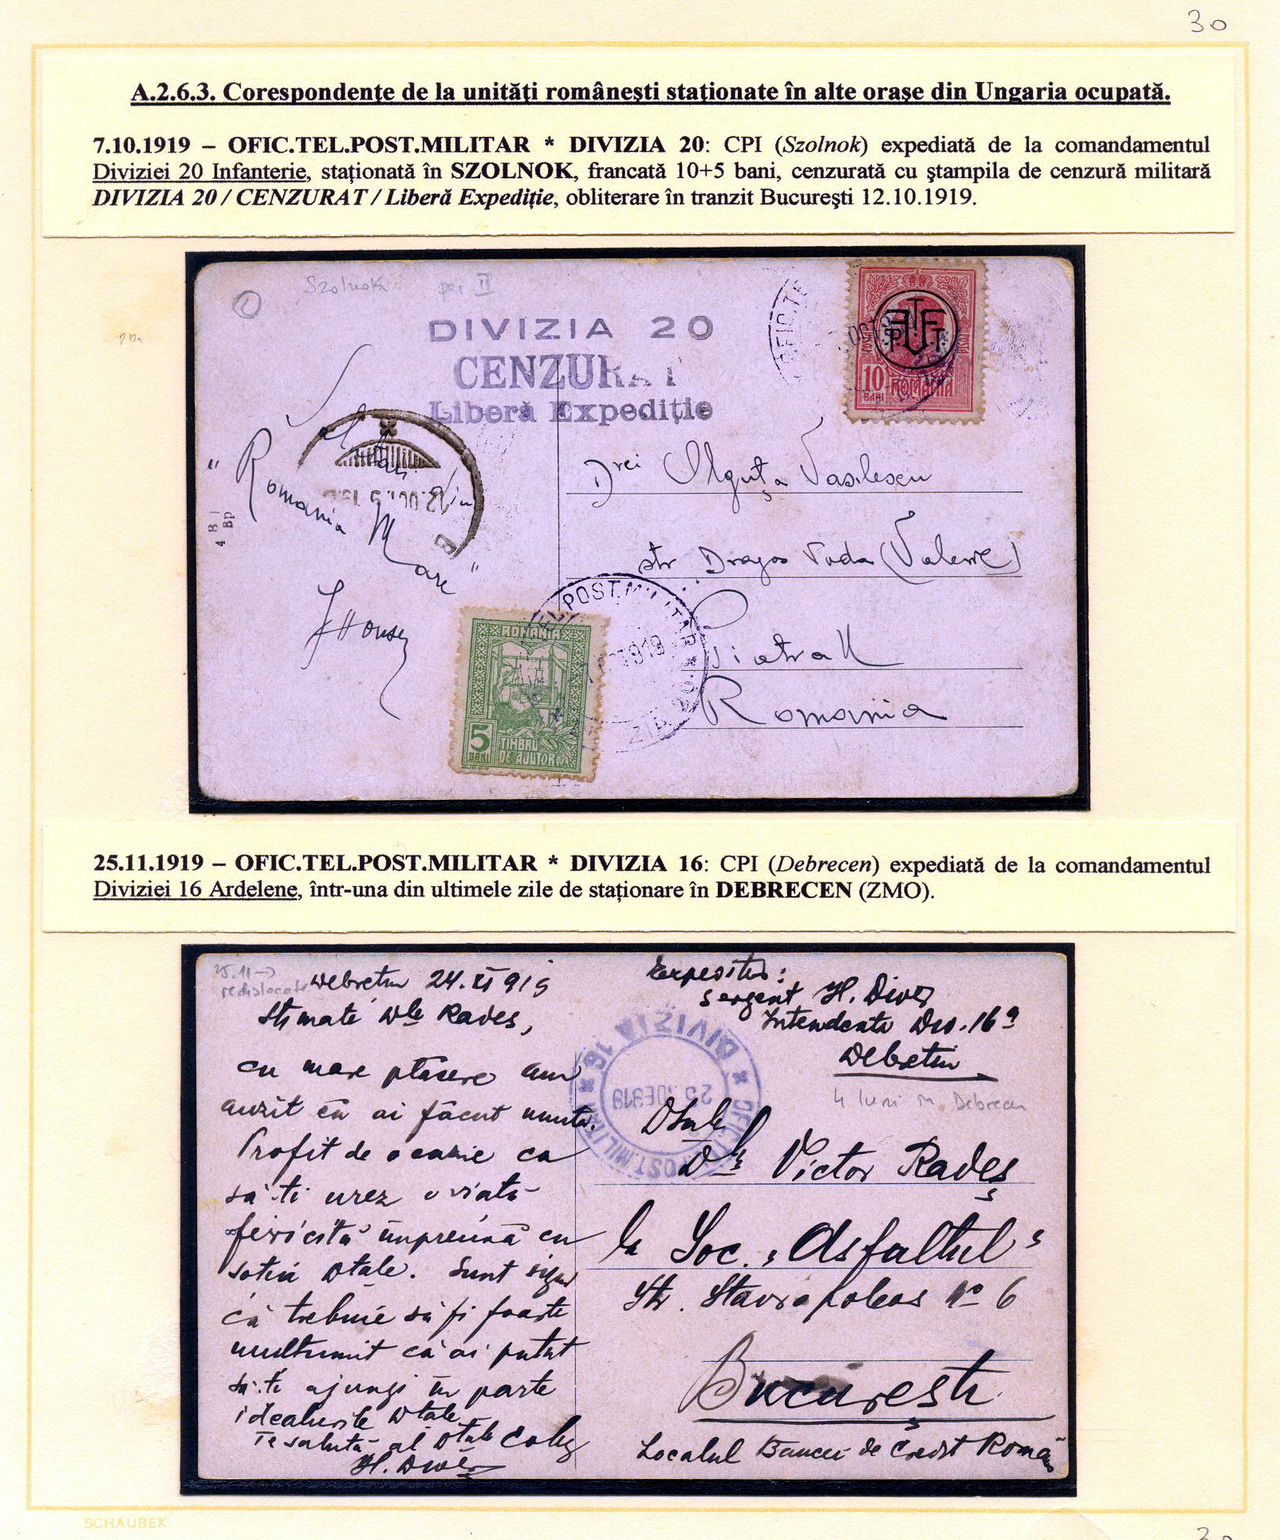 30
A.2.6.3. Corespondențe de la unități românești staționate în alte orașe din Ungaria ocupată.
7.10.1919 – OFIC.TEL.POST.MILITAR * DIVIZIA 20: CPI (Szolnok) expediată de la comandamentul
Diviziei 20 Infanterie, staționată în SZOLNOK, francată 10+5 bani, cenzurată cu ștampila de cenzură militară
DIVIZIA 20 / CENZURAT / Liberă Expediție, obliterare în tranzit București 12.10.1919.
Szolnok
DIVIZIA 20
CENZURAT
Liberă Expediție
10
BANI
ROMANIA
din
"Romania Mare"
Drei Olguța Vasilescu
str Dragoș Voda (Valene)
Piatra N
Romania
TEL.POST.MILITAR
ROMANIA
5
BANI
TIMBRU
DE AJUTOR
25.11.1919 – OFIC.TEL.POST.MILITAR * DIVIZIA 16: CPI (Debrecen) expediată de la comandamentul
Diviziei 16 Ardelene, într-una din ultimele zile de staționare în DEBRECEN (ZMO).
Debretin 24.XI 919
Stimate Dle Radeș,
cu mare plăcere am
auzit că ai făcut nunta.
Profit de ocazie ca
să-ti urez o viată
fericită împreună cu
sotia Dtale. Sunt sigur
că trebuie să fi foarte
multumit că ai putut
să-ti ajungi în parte
idealurile Dtale
Te salută al Dtale Coleg
H. Diveș
Expeditor:
Sergent H. Diveș
Intendenta Div. 16a
Debretin
4 luni în Debrecen
OFIC.TEL.POST.MILITAR * DIVIZIA 16 *
Dsale
Dlui Victor Radeș
la Soc. „Asfaltul"
Str. Stavropoleos No 6
București
Localul Bancei de Credit Român
SCHAUBEK